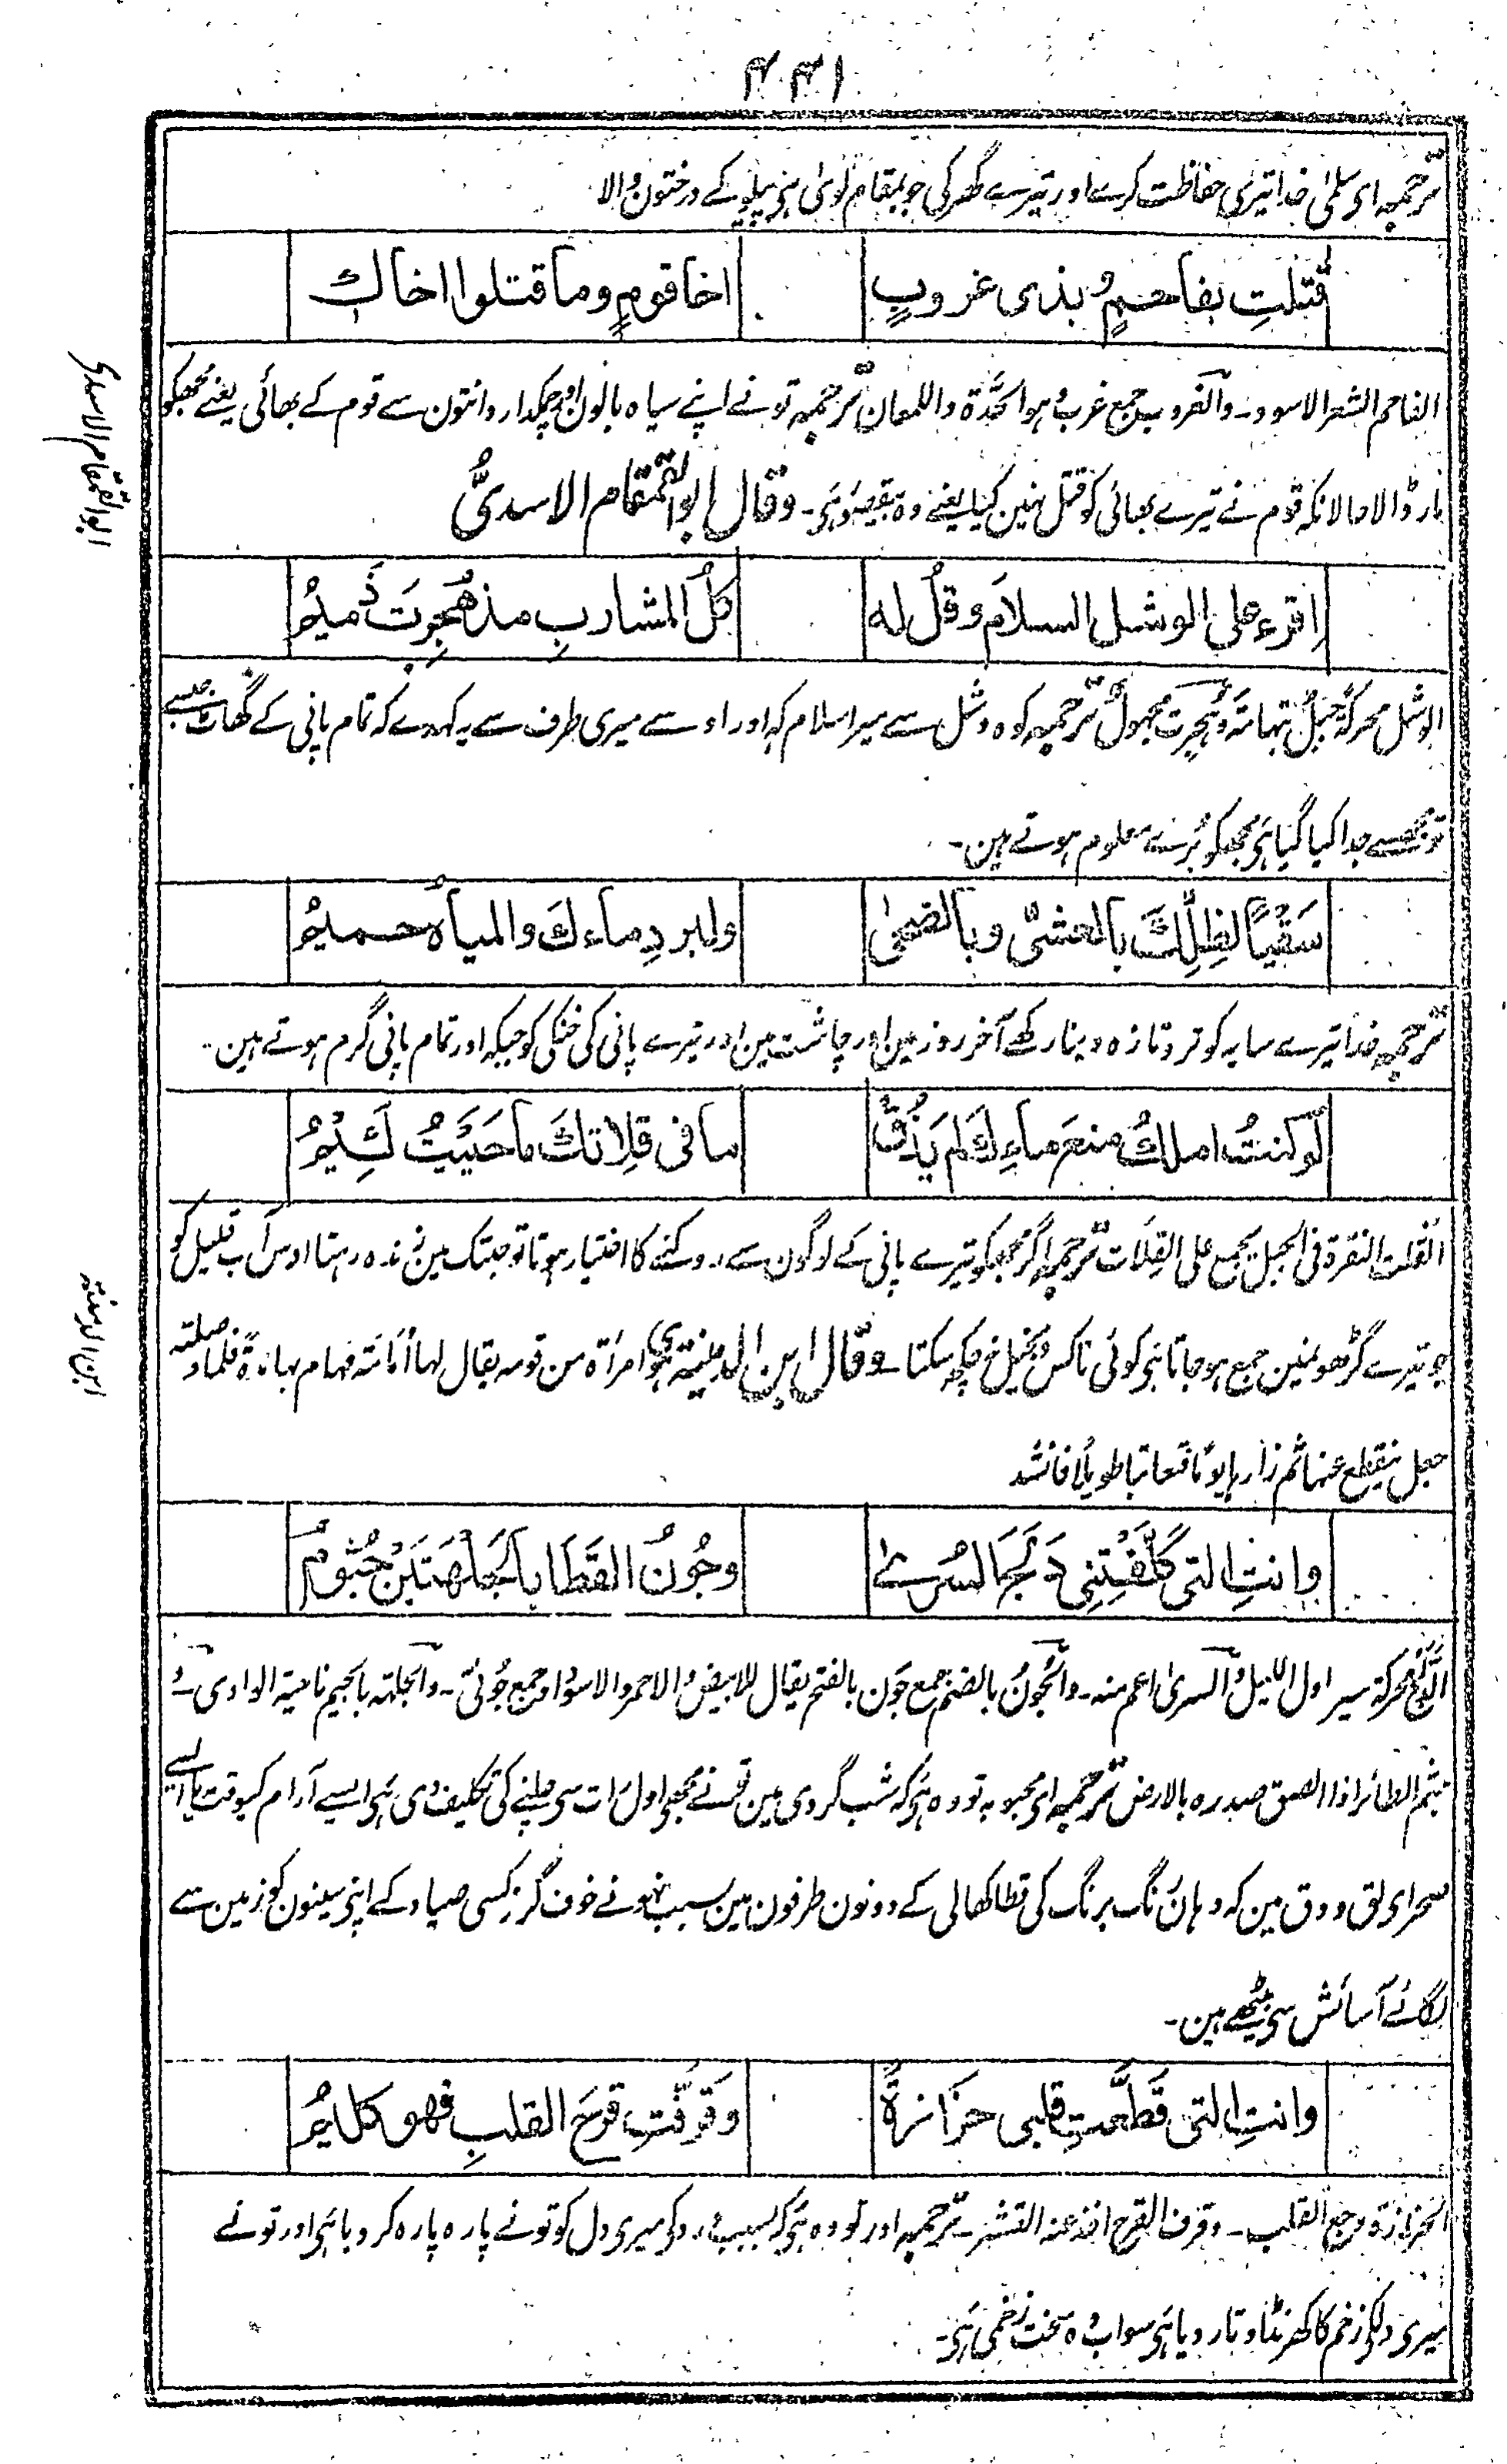 ۴۴۱
ترجمہ ای سلمیٰ خدا تیری حفاظت کرے اور تیرے گھر کی جو بمقام لویٰ ہی پیلو کے درختون والا
قتلتِ بفاحمٍ وبذی غروبٍ اخا قومٍ وما قتلوا اخاك
الفاحم الشعر الاسود۔ والغروب جمع غرب وہو الحدّة واللمعان ترجمہ تو نے اپنے سیاہ بالون اور چمکدار دانتون سے قوم کے بھائی یعنے مجھکو
مار ڈالا حالانکہ قوم نے تیرے بھائی کو قتل نہین کیا یعنے وہ بیقصور ہی۔ وقال ابو القمقام الاسدیُّ
ابو القمقام الاسدی
اِقرء علی الوشل السلامَ وقُل له كلُّ المشاربِ مذ هُجِرتَ ذَميمُ
الوشل محرکةً جبلٌ بتہامۃ وہُجِرت مجہولٌ ترجمہ کوہ وشل سے میرا سلام کہ اور اوسے میری طرف سے یہ کہدے کہ تمام پانی کے گھاٹ جبسے
تو مجھسے جدا کیا گیا ہی مجھکو بُرے معلوم ہوتے ہین۔
سَقْيًا لظِلِّكَ بالعشیّ وبالضحیٰ ولبردِ ماءِكَ والمیاهُ حمیمُ
ترجمہ خدا تیرے سایہ کو تر و تازہ و بنا رکھے آخر روز مین اور چاشت مین اور تیرے پانی کی خنکی کو جبکہ اور تمام پانی گرم ہوتے ہین۔
لَو كنتُ املكُ منعَ ماءِكَ لم يَذُقْ ما فی قِلاتكَ ما حَيِيتُ لَئيمُ
القَلت النقرة فی الجبل یجمع علی القِلَات ترجمہ اگر مجھکو تیرے پانی کے لوگون سے روکنے کا اختیار ہوتا تو جبتک مین زندہ رہتا اوس آب قلیل کو
جو تیرے گڑھونمین جمع ہو جاتا ہی کوئی ناکس و بخیل نہ چکھ سکتا۔ وقال ابن الدمینۃ ہوی امرأة من قومہ یقال لہا أمامۃ فہام بہا مدة فلما وصلتہ
ابن الدمینۃ
جعل ینقطع عنہا ثم زارہا یومًا فتعاتبا طویلًا فانشد
وانتِ التی كلَّفْتِنِی دَلَجَ السُرىٰ وجُونُ القَطَا بالجَلْهَتَيْنِ جُثُومُ
الدَلَج محرکة سیر اول اللیل والسریٰ اعم منہ۔ والجُونُ بالضم جمع جَون بالفتح یقال للابیض والاحمر والاسود وجمع جُونیّ۔ والجلہۃ بالجیم ناحیۃ الوادی۔ و
جثم الطائر اذا الصق صدرہ بالارض ترجمہ ای محبوبہ تو وہ ہی کہ شب گردی مین تونے مجھی اول رات سی چلنے کی تکلیف دی ہی ایسے آرام کیوقت یا ایسے
صحرای لق و دق مین کہ وہان رنگ برنگ کی قطا کھالی کے دونون طرفون مین بسبب نہونے خوف گزند کسی صیاد کے اپنی سینون کو زمین سے
لگائے آسائش سی بیٹھے ہین۔
وانتِ التی قَطَّعتِ قلبی حَزَازَةً وقَرَفتِ قرحَ القلبِ فهو كليمُ
الحزازة وجع القلب۔ وقرف القرح اخذ عنہ القشر۔ ترجمہ اور تو وہ ہی کہ بسبب درد کی میری دل کو تونے پارہ پارہ کر دیا ہی اور تو نے
میری دلکی زخم کا کھرنڈ اوتار دیا ہی سو اب وہ سخت زخمی ہی۔